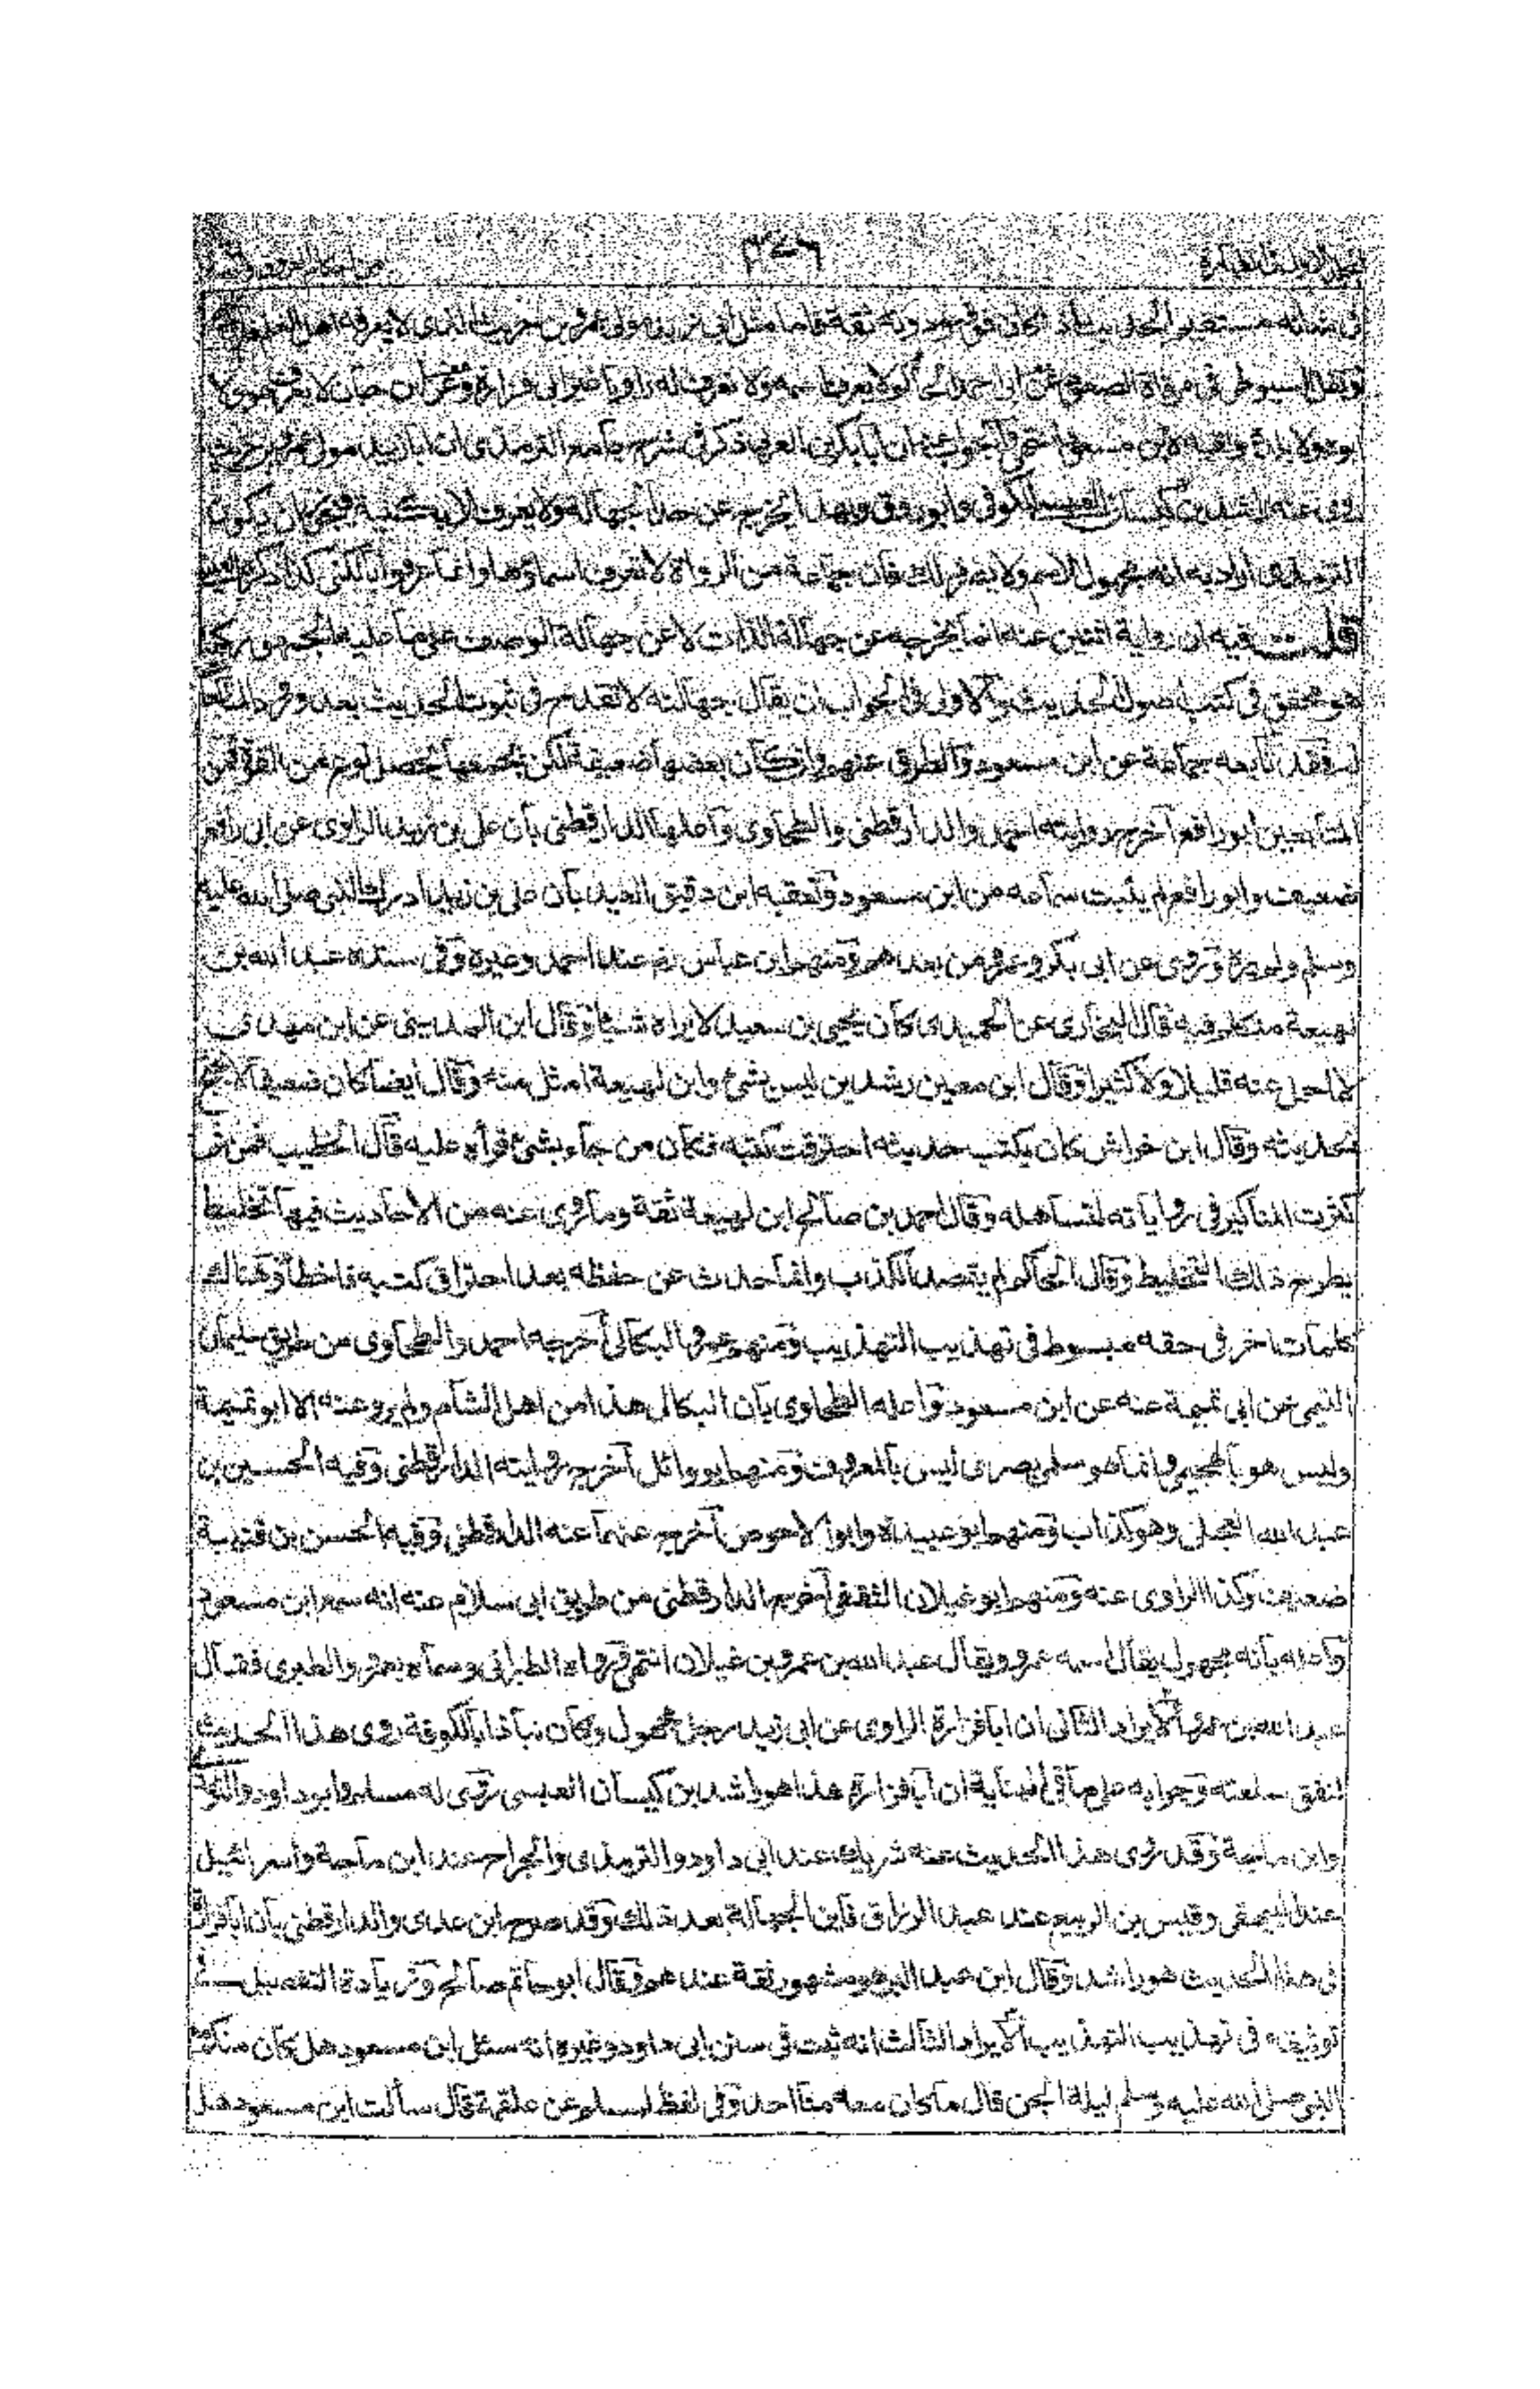 ٣٤٦
ونقل السيوطي في مرقاة الصعود عن ابي احمد الحاكم لا يعرف اسمه ولا نعرف له راويا غير ابي فزارة وعن ابن حبان لا
ولا بلده والجواب عنه ان ابا بكر بن العربي ذكر في شرح جامع الترمذي ان ابا زيد مولى عمرو بن حريث
روى عنه راشد بن كيسان العبسي الكوفي وابو روق وبهذا يخرج عن حد الجهالة ولا يعرف الا بكنيته فيجوز ان يكون
الترمذي اراد به انه مجهول الاسم ولا يضر ذلك فان جماعة من الرواة لا تعرف اسماؤهم وانما عرفوا بالكنى كذا ذكره
قلت فيه ان رواية اثنين عنه انما يخرجه عن جهالة الذات لا عن جهالة الوصف على ما عليه الجمهور كما
هو محقق في كتب اصول الحديث والاولى في الجواب ان يقال جهالته لا تقدح في ثبوت الحديث بعد ورود
فقد تابعه جماعة عن ابن مسعود والطرق عنهم وان كان بعضها ضعيفة لكن بجمعها يحصل نوع من القوة فمن
المتابعين ابو رافع اخرج روايته احمد والدارقطني والطحاوي واعلها الدارقطني بان علي بن زيد الراوي عن ابي رافع
ضعيف وابو رافع لم يثبت سماعه من ابن مسعود وتعقبه ابن دقيق العيد بان علي بن زيد ادرك النبي صلى الله عليه
وسلم ولم يره وروى عن ابي بكر وعمر ومن بعدهم ومنهم ابن عباس رض عند احمد وغيره وفي سنده عبد الله بن
لهيعة متكلم فيه قال البخاري عن الحميدي كان يحيى بن سعيد لا يراه شيئا وقال ابن المديني عن ابن مهدي
لا احمل عنه قليلا ولا كثيرا وقال ابن معين رشدين ليس بشئ وابن لهيعة امثل منه وقال ايضا كان ضعيفا لا يحتج
بحديثه وقال ابن خراش كان يكتب حديثه احترقت كتبه فكان من جاء بشئ قرأه عليه قال الخطيب فمن ثم
كثرت المناكير في رواياته لتساهله وقال احمد بن صالح ابن لهيعة ثقة وما روى عنه من الاحاديث فيها تخليط
يطرح ذلك التخليط وقال الحاكم لم يقصد الكذب وانما حدث عن حفظه بعد احتراق كتبه فاخطأ وهناك
كلمات اخر في حقه مبسوط في تهذيب التهذيب ومنهم عمرو البكالي اخرجه احمد والطحاوي من طريق سليمان
التيمي عن ابي تميمة عنه عن ابن مسعود واعله الطحاوي بان البكالي هذا من اهل الشام ولم يرو عنه الا ابو تميمة
وليس هو بالهجيمي وانما هو سلمي بصري ليس بالمعروف ومنهم ابو وائل اخرج روايته الدارقطني وفيه الحسين بن
عبد الله العجلي وهو كذاب ومنهم ابو عبيدة وابو الاحوص اخرج عنهما عنه الدارقطني وفيه الحسن بن قتيبة
ضعيف وكذا الراوي عنه ومنهم ابو غيلان الثقفي اخرجها الدارقطني من طريق ابي سلام عنه انه سمع ابن مسعود
واعله بانه مجهول يقال اسمه عمرو ويقال عبد الله بن عمرو بن غيلان انتهى ورواه الطبراني وسماه بعمرو والطبري فقال
عبد الله بن عمرو الايراد الثاني ان ابا فزارة الراوي عن ابي زيد رجل مجهول وكان نباذا بالكوفة روى هذا الحديث
لنفق سلعته وجوابه على ما في البناية ان ابا فزارة هذا هو راشد بن كيسان العبسي روى له مسلم وابو داود والترمذي
وابن ماجة وقد روى هذا الحديث عنه شريك عند ابي داود والترمذي والجراح عند ابن ماجة واسرائيل
عند البيهقي وقيس بن الربيع عند عبد الرزاق فاين الجهالة بعد ذلك وقد صرح ابن عدي والدارقطني بان ابا فزارة
في هذا الحديث هو راشد وقال ابن عبد البر هو مشهور ثقة عندهم وقال ابو حاتم صالح وزيادة التفصيل في
توثيقه في تهذيب التهذيب الايراد الثالث انه ثبت في سنن ابي داود وغيره انه سئل ابن مسعود هل كان منكم مع
النبي صلى الله عليه وسلم ليلة الجن قال ما كان معه منا احد وفي لفظ لمسلم عن علقمة قال سألت ابن مسعود هل